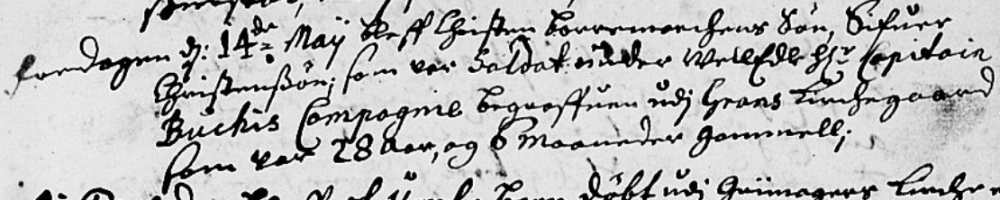 fredagen dj: 14de Maÿ bleff Christen Borremorchens Søn, Sifuer
Christensßøn, som var Soldat under WelEdle Hr Capitain
Buchis Compagnie begraffuen udj Graas Kirchegaard
som var 28 Aar, og 6 Maaneder gammell;
Døbt udj Kirche